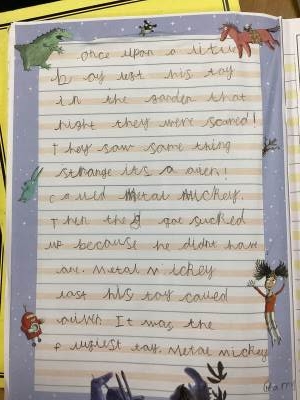 once upon a litue
boy ust his toy
in the garden that
night they were scared!
They saw some thing
strange its a alien!
could Metal Mickey.
Then they got sucked
up because he didnt have
air. Metal Mickey
last his toy called
It was the
toy. Metal mickey